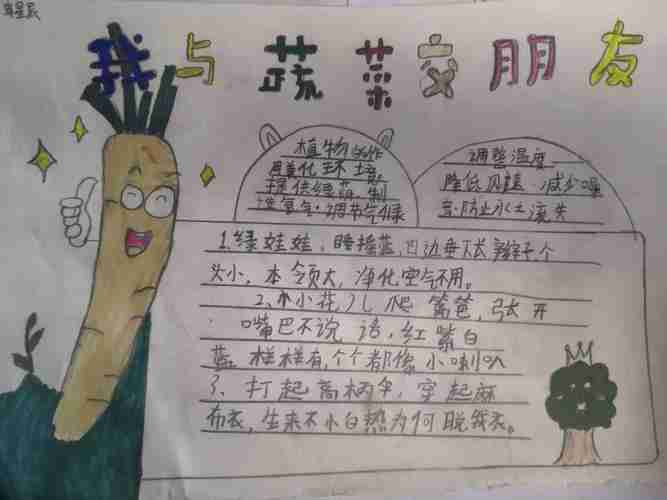 我与蔬菜交朋友
植物的作
用美化环境
提供绿荫,制
造氧气·调节气候
调整温度
降低风速·减少噪
音·防止水土流失
1.绿娃娃,睡摇蓝,四边垂下长辫子个
头小,本领大,净化空气不用。
2.小小花儿爬篱笆,张开
嘴巴不说话,红紫白
蓝样样有,个个都像小喇叭
3、打起高柄伞,穿起麻
布衣,生来不小白热为何脱我衣。